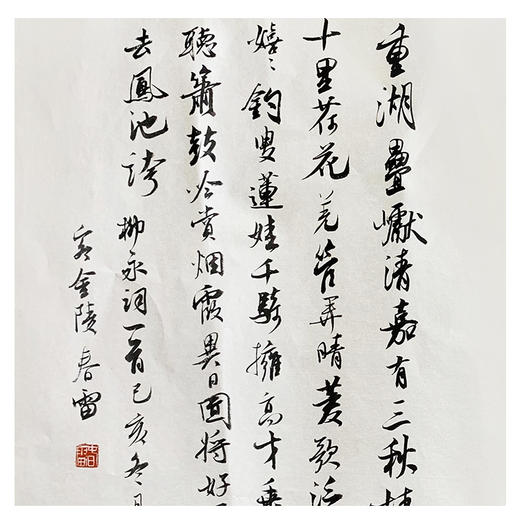 重湖疊巘清嘉有三秋桂
十里荷花羌管弄晴菱歌泛
嬉〻釣叟蓮娃千騎擁高牙乘
聽簫鼓吟賞烟霞異日圖將好
去鳳池誇 柳永詞一首己亥冬月
客金陵春雷